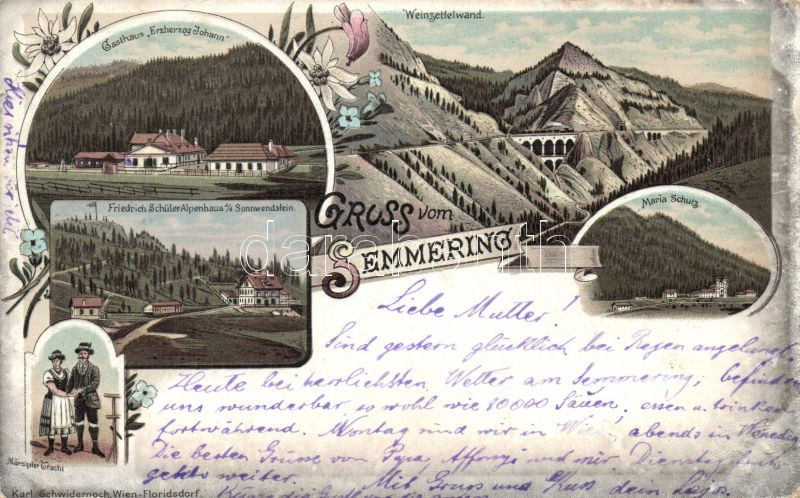 Gasthaus „Erzherzog Johann"
Weinzettelwand.
Friedrich Schüler Alpenhaus a/s Sonnwendstein.
GRUSS vom
SEMMERING
Maria Schutz
Mürzthaler Tracht
Karl Schwidernoch, Wien-Floridsdorf.
darabanth
Liebe Mutter!
Sind gestern glücklich bei Regen angelangt.
Heute bei herrlichsten Wetter am Semmering, befinden
uns wunderbar, so wohl wie 80000 Säuen, essen u. trinken
fortwährend. Montag sind wir in Wien, abends in Venedig
Die besten Grüsse von Papa, und mir, Dienstag
geht's weiter. Mit Gruss und Kuss dein